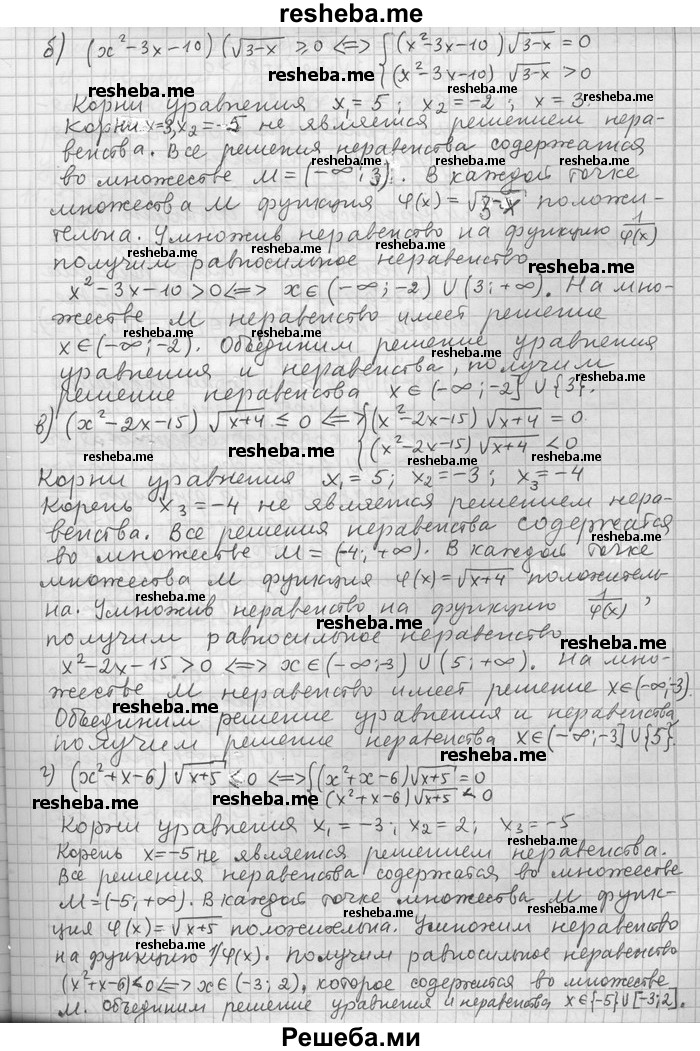 resheba.me
б) (x²-3x-10)(√3-x ≥ 0 <=> {(x²-3x-10)√3-x = 0
{(x²-3x-10) √3-x > 0
resheba.me resheba.me
Корни уравнения x₁ = 5; x₂ = -2; x = 3.
Корни x=3, x₂ = -5 не является решением нера-
венства. Все решения неравенства содержатся
во множестве M = (-∞; 3). В каждой точке
множества M функция φ(x) = √3-x положи-
тельна. Умножив неравенство на функцию 1/φ(x)
получим равносильное неравенство
x²-3x-10 > 0 <=> x∈(-∞; -2) ∪ (3; +∞). На мно-
жестве M неравенство имеет решение
x∈(-∞; -2). Объединим решение уравнения
уравнения и неравенства, получим
решение неравенства x∈(-∞; -2] ∪ {3}.
в) (x²-2x-15) √x+4 ≤ 0 <=> {(x²-2x-15) √x+4 = 0
{(x²-2x-15) √x+4 < 0
Корни уравнения x₁ = 5; x₂ = -3; x₃ = -4
Корень x₃ = -4 не является решением нера-
венства. Все решения неравенства содержатся
во множестве M = (-4; +∞). В каждой точке
множества M функция φ(x) = √x+4 положитель-
на. Умножив неравенство на функцию 1/φ(x),
получим равносильное неравенство
x²-2x-15 > 0 <=> x∈(-∞; -3) ∪ (5; +∞). На мно-
жестве M неравенство имеет решение x∈(-∞; -3).
Объединим решение уравнения и неравенства
получим решение неравенства x∈(-∞; -3] ∪ {5}.
г) (x²+x-6) √x+5 < 0 <=> {(x²+x-6) √x+5 = 0
{(x²+x-6) √x+5 < 0
Корни уравнения x₁ = -3; x₂ = 2; x₃ = -5
Корень x = -5 не является решением неравенства.
Все решения неравенства содержатся во множестве
M = (-5; +∞). В каждой точке множества M функ-
ция φ(x) = √x+5 положительна. Умножим неравенство
на функцию 1/φ(x). Получим равносильное неравенство
(x²+x-6) < 0 <=> x∈(-3; 2), которое содержится во множестве
M. Объединим решение уравнения и неравенства x∈{-5}∪[-3; 2].
Решеба.ми